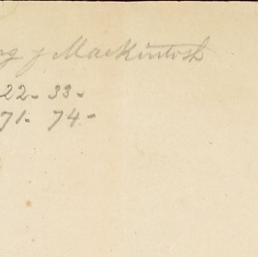 g of Mackintosh
22- 33-
71- 74-